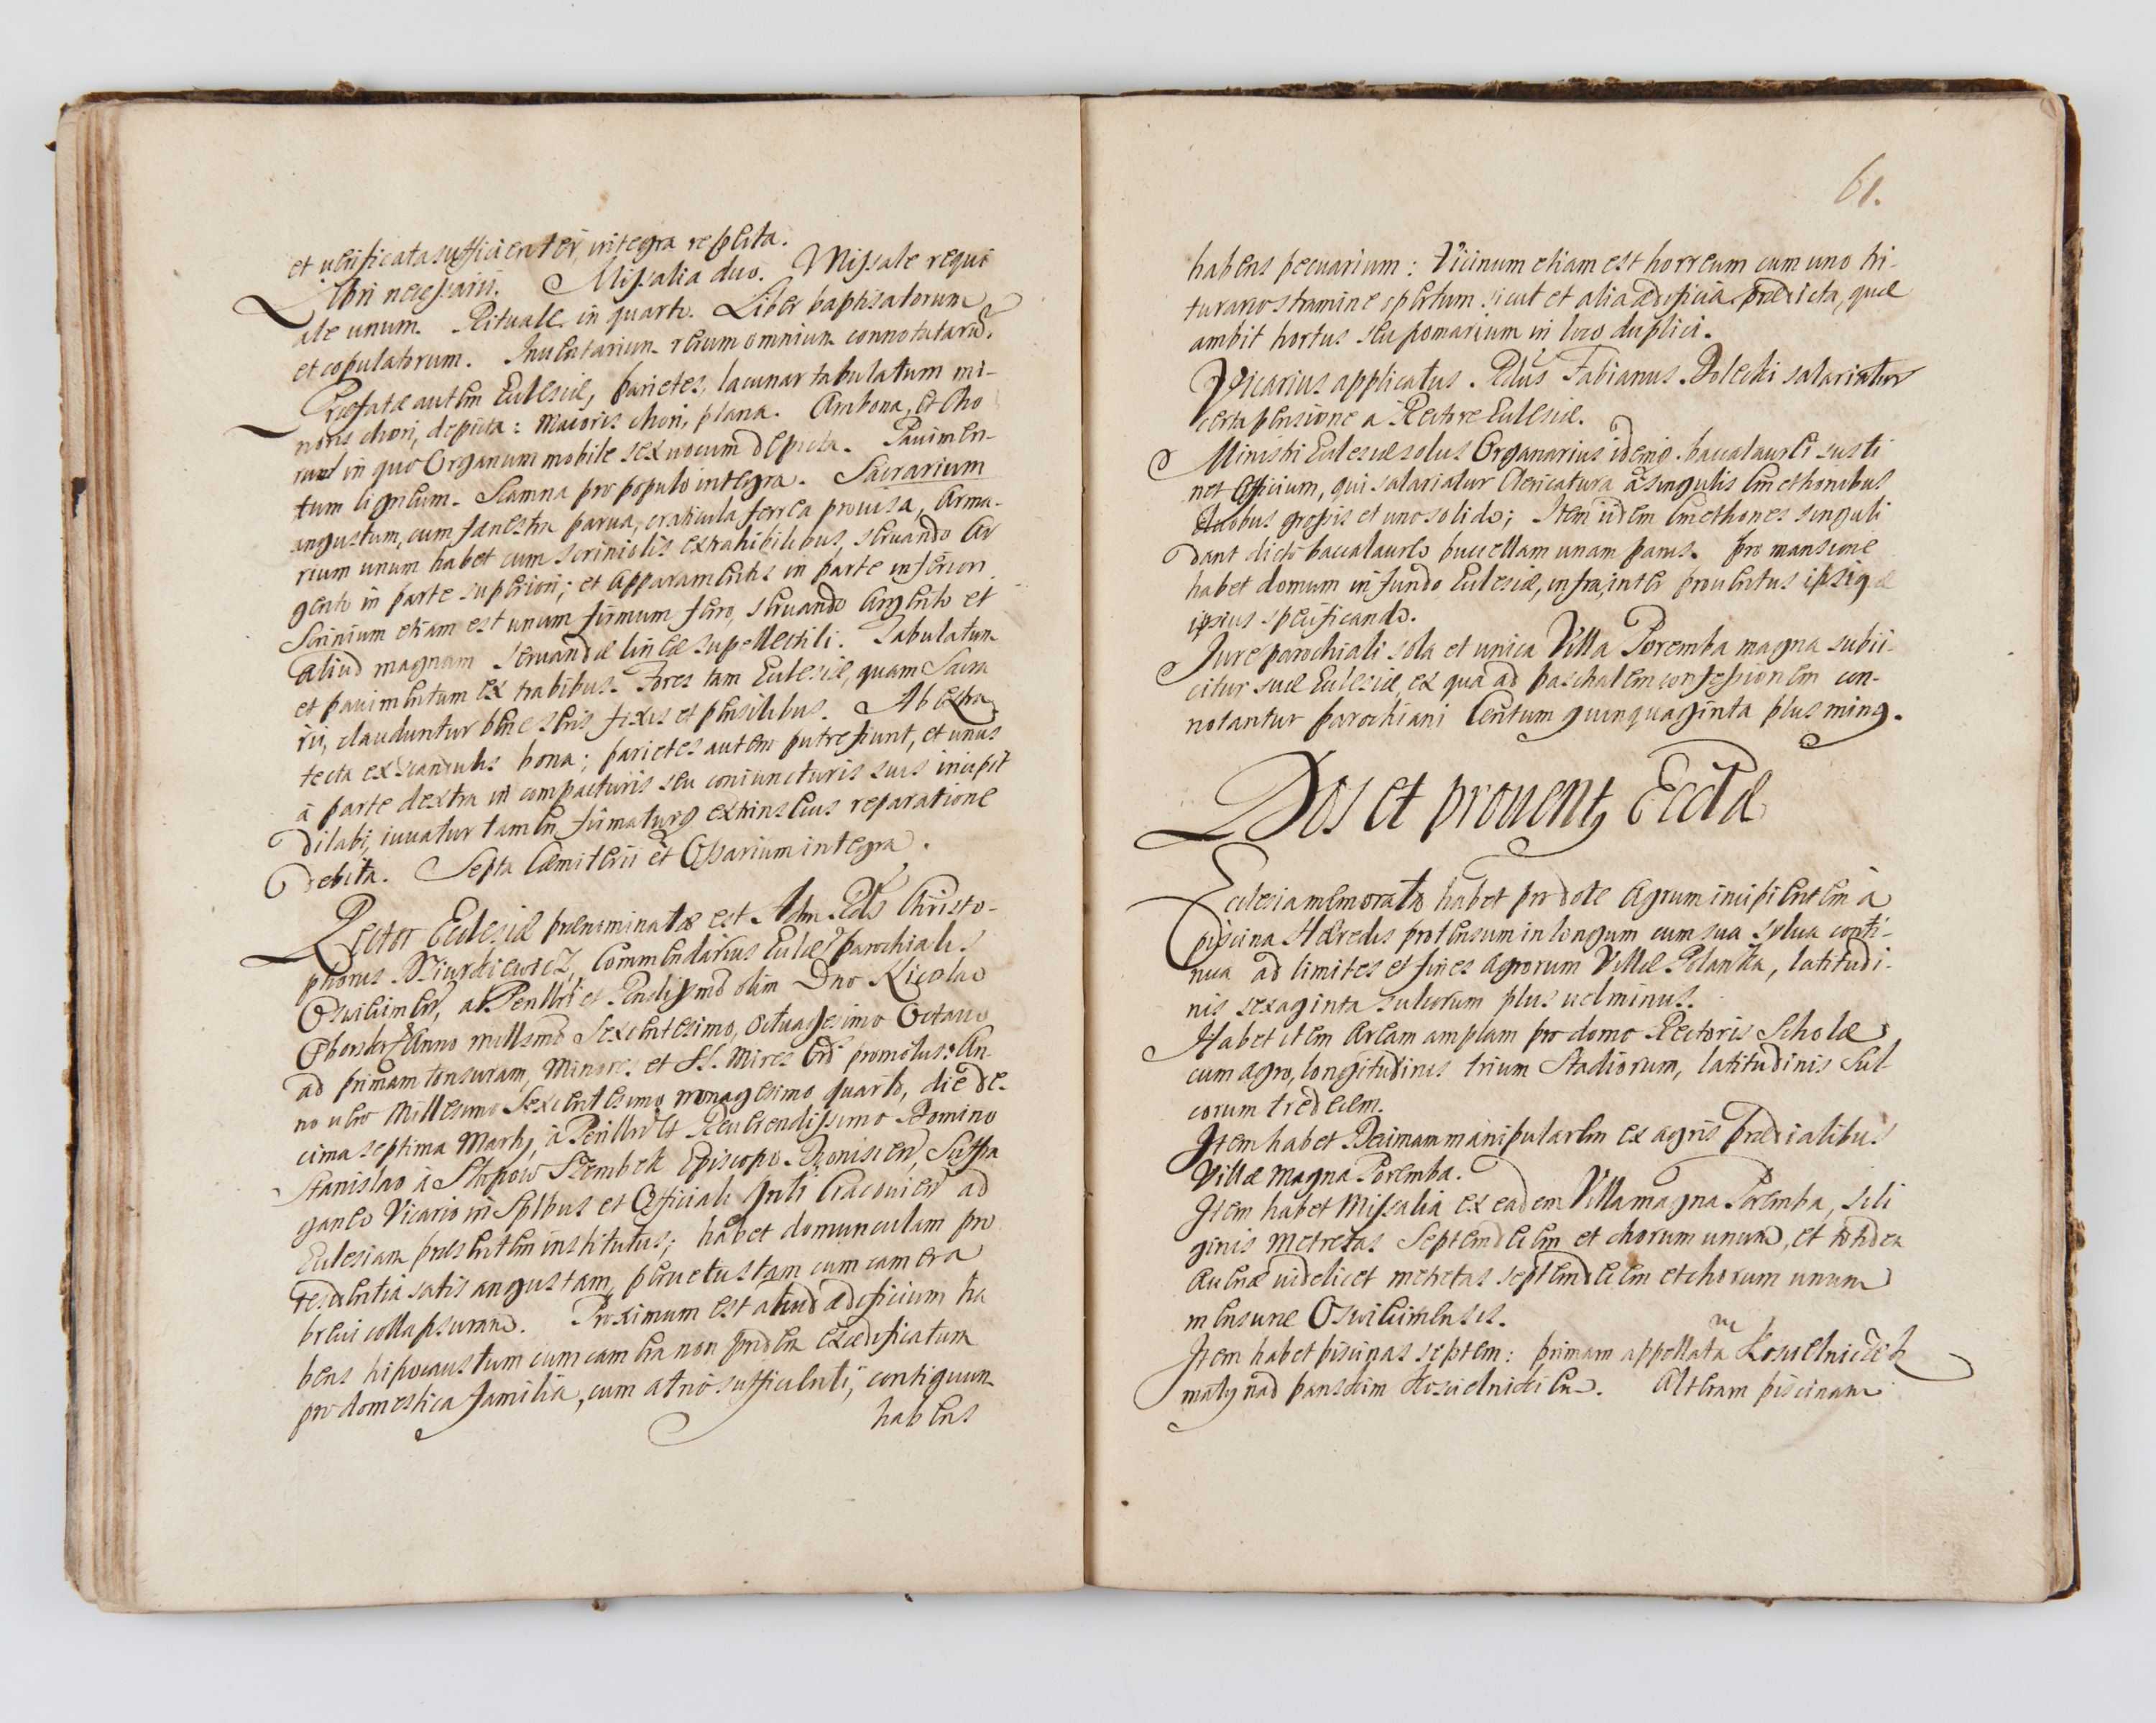 et uerificata sufficienter, integra repleta.
Libri necessarii. Missalia duo. Missale requi
ale unum. Rituale in quarto. Liber baptisatorum
et copulatorum. Inuentarium rerum omnium connotatarum.
Præfatæ autem Ecclesiæ, parietes, lacunar tabulatum mi-
noris chori, depicta: maioris chori, plana. Ambona, et cho
rus in quo Organum mobile sex uocum depicta. Pauimen-
tum ligneum. Scamna pro populo integra. Sacrarium
angustum, cum fenestra parua, craticula ferrea prouisa, Arma-
rium unum habet cum scriniolis extrahibilibus, seruando Ar
gento in parte superiori; et Apparamentis in parte inferiori
Scrinium etiam est unum firmum ferro, seruando Argento et
aliud magnum seruandæ lineæ supellectili. Tabulatum
et pauimentum ex trabibus. Fores tam Ecclesiæ, quam Sacra
rii, clauduntur bene seris fixis et pensilibus. Ab extra
tecta ex scandulis bona; parietes autem putrefiunt, et unus
à parte dextra in compacturis seu coniuncturis suis incipit
dilabi, iuuatur tamen firmaturq extrinsecus reparatione
debita. Septa Cæmiterii et Ossarium integra.
Rector Ecclesiæ prænominatæ est Adm. Rdus Christo-
phorus Dziurdiewicz, Commendarius Ecclæ parochialis
Oswiecimen, ab Perillri et Rndissimo olim Dno Nicolao
Oborski Anno millsmo Sexcentesimo, octuagesimo Octauo
ad primam tonsuram, Minores et SS. Mires Ord. promotus: An-
no uero Millesimo Sexcentesimo nonagesimo quarto, die de-
cima septima Martij, à Perillri et Reuerendissimo Domino
Stanislao à Słupow Szembek Episcopo Dionisien, Suffra
ganeo Vicario in Splbus et Officiali Gnli Cracouien ad
Ecclesiam præsentem institutus; habet domunculam pro
residentia satis angustam, peruetustam cum camera
breui collapsuram. Proximum est aliud ædificium ha
bens hipocaustum cum camera non pridem exædificatum
pro domestica familia, cum atrio sufficienti, contiguum
habens
61.
habens pecuarium: Vicinum etiam est horreum cum uno tri-
turario stramine opertum sicut et alia ædificia prædicta, quæ
ambit hortus seu pomarium in loco duplici.
Vicarius applicatus Rdus Fabianus Dolecki salariatur
certa pensione a Rectore Ecclesiæ.
Ministri Ecclesiæ solus Organarius idemq baccalaurei susti
net Officium, qui salariatur Clericatura à singulis Cmethonibus
duobus grossis et uno solido; Item iidem Cmethones singuli
dant dicto baccalaureo buccellam unam panis. Pro mansione
habet domum in fundo Ecclesiæ, infra inter prouentus ipsiq
ipsius specificando.
Jure parochiali sola et unica Villa Poremba magna subii-
citur suæ Ecclesiæ, ex qua ad paschalem confessionem con-
notantur parochiani Centum quinquaginta plus minq.
Dos et prouentq Eccłæ
Ecclesia memorata habet pro dote Agrum incipientem à
piscina Hæredis protensum in longum cum sua sylua conti-
nua ad limites et fines Agrorum Villæ Polanka, latitudi-
nis sexaginta sulcorum plus uel minus.
Habet item Aream amplam pro domo Rectoris Scholæ
cum agro, longitudinis trium Stadiorum, latitudinis Sul
corum tredecem.
Item habet Decimam manipularem ex agris prædialibus
Villæ magna Poremba.
Item habet Missalia ex eadem Villa magna Poremba, sili
ginis metretas Septemdecem et chorum unum, et totidem
Auenæ uidelicet metretas septemdecem et chorum unum
mensuræ Oswiecimensis.
Item habet piscinas septem: primam appellatam Koscielniczek
mały nad panskim Koscielniczkiem. Alteram piscinam